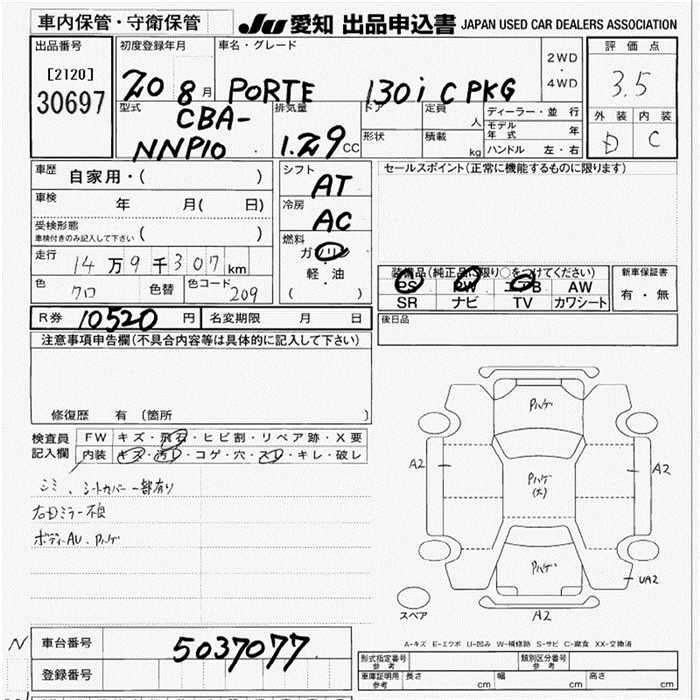 車内保管・守衛保管
JU 愛知 出品申込書 JAPAN USED CAR DEALERS ASSOCIATION
出品番号
[2120]
30697
初度登録年月
20 8月
車名・グレード
PORTE 130i C PKG
2WD
・
4WD
評価点
3.5
外装 内装
D C
型式
CBA-
NNP10
排気量
1.29CC
ドア
形状
定員 人
積載 kg
ディーラー・並行
モデル年式 年
ハンドル 左・右
車歴 自家用・( )
車検 年 月( 日)
受検形態
車検付きのみ記入して下さい ( )
走行 14万9千307km
色 クロ 色替 色コード 209
シフト AT
冷房 AC
燃料
ガソリン
・
軽・油
( )
セールスポイント(正常に機能するものに限ります)
装備品(純正品に限り○をつけてください)
PS PW エアB AW
SR ナビ TV カワシート
新車保証書
有・無
R券 10520円 名変期限 月 日
後日品
注意事項申告欄(不具合内容等は具体的に記入して下さい)
修復歴 有〔箇所 〕
検査員
記入欄
FW キズ・飛石・ヒビ割・リペア跡・X要
内装 キズ・汚レ・コゲ・穴・スレ・キレ・破レ
シミ、シートカバー一部有り
右Dミラー不良
ボディーAU、Pハゲ
Pハゲ
A2
Pハゲ
(大)
A2
Pハゲ
UA2
スペア
A2
A-キズ E-エクボ U-凹み W-補修跡 S-サビ C-腐食 XX-交換済
N
車台番号 5037077
登録番号
形式指定番号
参考
類別区分番号
参考
車庫証明用
参考
長さ cm 幅 cm 高さ cm